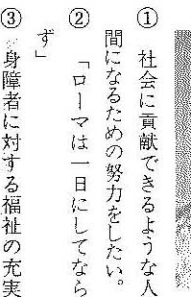 ① 社会に貢献できるような人
間になるための努力をしたい。
② 「ローマは一日にしてなら
ず」
③ 身障者に対する福祉の充実